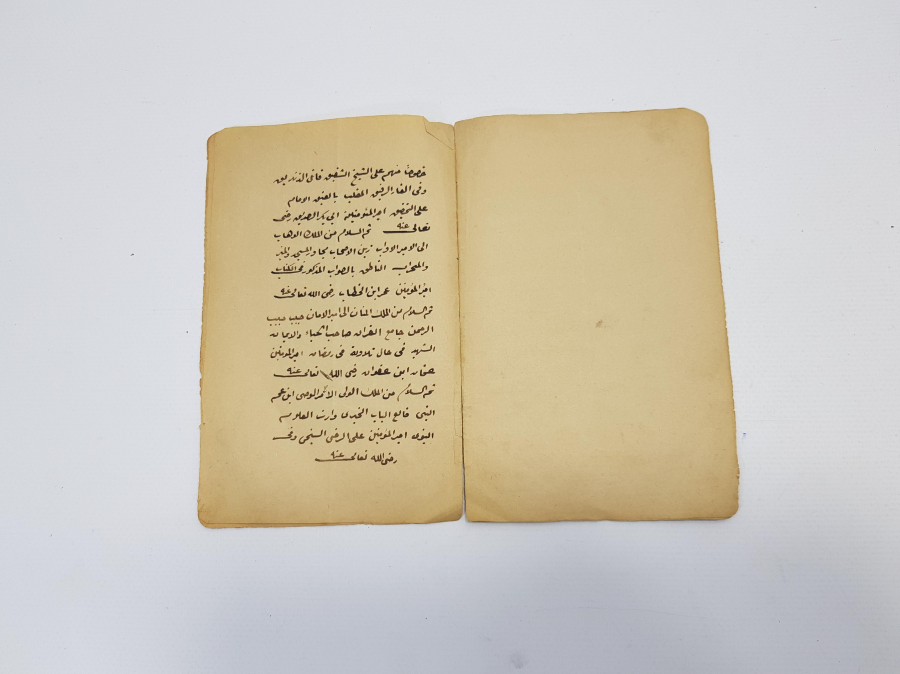 خصوصًا منهم على الشيخ الشفيق قاتل الزنديق
وفى الغار الرفيق الملقب بالعتيق الامام
على التحقيق امير المؤمنين ابى بكر الصديق رضى
تعالى عنه ثم السلام من الملك الوهاب
الى الامير الاواب زين الاصحاب مجاور المسجد والمنبر
والمحراب الناطق بالصواب المذكور فى الكتاب
امير المؤمنين عمر ابن الخطاب رضى الله تعالى عنه
ثم السلام من الملك المنان الى امير الامان حبيب حبيب
الرحمن جامع القران صاحب الحياء والايمان
الشهيد فى حال تلاوته فى رمضان امير المؤمنين
عثمان ابن عفوان رضى الله تعالى عنه
ثم السلام من الملك الولى الوصى ابن عم
النبى قالع الباب الخيبرى وارث العلوم
النبوى امير المؤمنين على الرضى السخى
رضى الله تعالى عنه